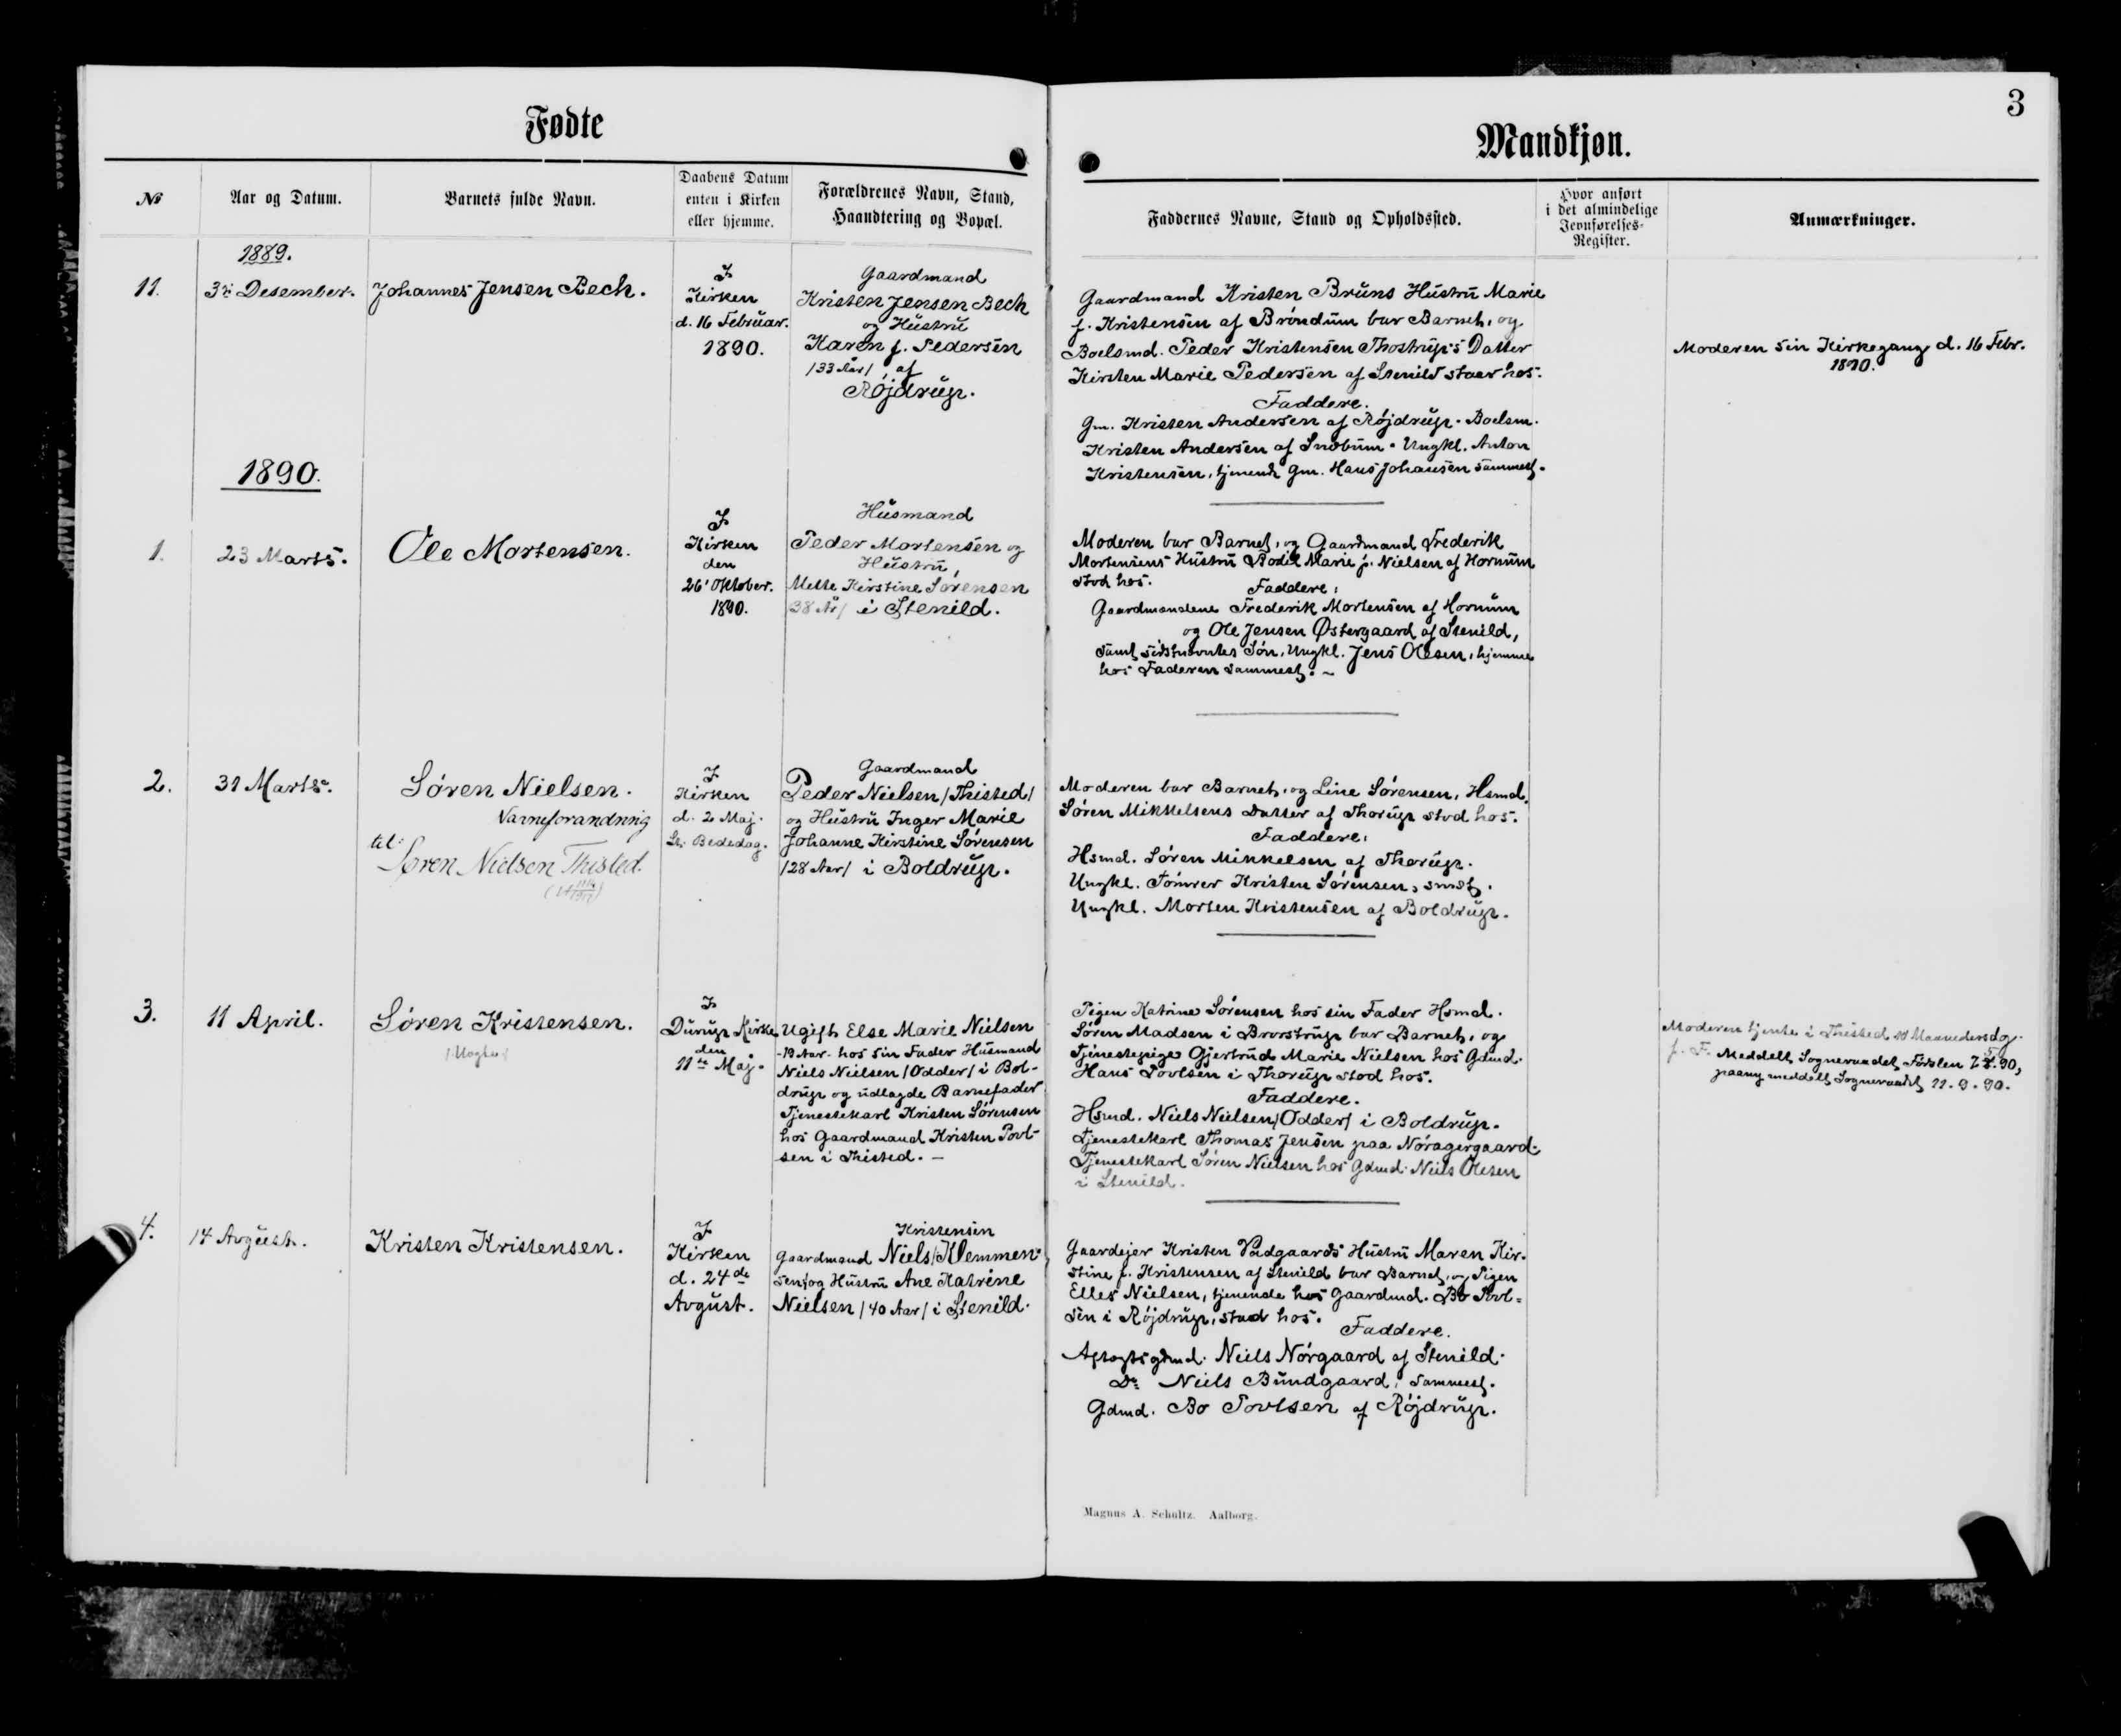 Fødte
Mandkjøn.
3
№
Aar og Datum.
Barnets fulde Navn.
Daabens Datum
enten i Kirken
eller hjemme.
Forældrenes Navn, Stand,
Haandtering og Bopæl.
Faddernes Navne, Stand og Opholdssted.
Hvor anført
i det almindelige
Jevnførelses-
Register.
Anmærkninger.
1889.
11.
3die Desember.
Johannes Jensen Bech.
I
Kirken
d. 16 Februar.
1890.
Gaardmand
Kristen Jensen Bech
og Hustru
Karen f. Pedersen
/33 Aar/ af
Røjdrup.
Gaardmand Kristen Bruns Hustru Marie
f. Kristensen af Brøndum bar Barnet, og
Boelsmd. Peder Kristensen Thostrup's Datter
Kirsten Marie Pedersen af Stenild staar hos.
Faddere.
Gm. Kristen Andersen af Røjdrup. Boelsm.
Kristen Andersen af Snæbum. Ungkl. Anton
Kristensen, tjenende Gm. Hans Johansen sammest.
Moderen sin Kirkegang d. 16 Febr.
1890.
1890.
1.
23 Marts.
Ole Mortensen.
I
Kirken
den
26' Oktober.
1890.
Husmand
Peder Mortensen og
Hustru,
Mette Kirstine Sørensen
38 Ar/ i Stenild.
Moderen bar Barnet, og Gaardmand Frederik
Mortensens Hustru Bodil Marie f. Nielsen af Hornum
stod hos.
Faddere:
Gaardmandene Frederik Mortensen af Hornum
og Ole Jensen Østergaard af Stenild,
samt sidstnævntes Søn, Ungkl. Jens Olesen, hjemme
hos Faderen sammest. -
2.
31 Marts.
Søren Nielsen.
Navneforandring
til
Søren Nielsen Thisted.
I
Kirken
d. 2 Maj.
St. Bededag.
Gaardmand
Peder Nielsen /Thisted/
og Hustru Inger Marie
Johanne Kirstine Sørensen
/28 Aar/ i Boldrup.
Moderen bar Barnet, og Line Sørensen, Hsmd.
Søren Mikkelsens Datter af Thorup stod hos.
Faddere:
Hsmd. Søren Mikkelsen af Thorup.
Ungkl. Tømrer Kristen Sørensen, smst.
Ungkl. Morten Kristensen af Boldrup.
3.
11 April.
Søren Kristensen.
/Uægte/
I
Durup Kirke
den
11te Maj.
Ugift Else Marie Nielsen
-19 Aar- hos sin Fader Husmand
Niels Nielsen /Odder/ i Bol-
drup og udlagde Barnefader
Tjenestekarl Kristen Sørensen
hos Gaardmand Kristen Povl-
sen i Thisted. -
Pigen Katrine Sørensen hos sin Fader Hsmd.
Søren Madsen i Brorstrup bar Barnet, og
Tjenestepige Gjertrud Marie Nielsen hos Gdmd.
Hans Povlsen i Thorup stod hos.
Faddere.
Hsmd. Niels Nielsen /Odder/ i Boldrup.
Tjenestekarl Thomas Jensen paa Nøragergaard.
Tjenestekarl Søren Nielsen hos Gdmd. Niels Olesen
i Stenild.
Moderen tjente i Thisted 10 Maanedersdag
f. F. Meddelt Sogneraadet Fødslen 7.5.90,
paany meddelt Sogneraadet 11.9.90.
4.
14 Avgust.
Kristen Kristensen.
I
Kirken
d. 24de
Avgust.
Kristensen
Gaardmand Niels /Klemmen-
sen/ og Hustru Ane Katrine
Nielsen /40 Aar/ i Stenild.
Gaardejer Kristen Vadgaards Hustru Maren Kir-
stine f. Kristensen af Stenild bar Barnet, og Pigen
Elles Nielsen, tjenende hos Gaardmd. Bo Povl-
sen i Røjdrup, stod hos.
Faddere.
Aftægtsgdmd. Niels Nørgaard af Stenild.
Do Niels Bundgaard, sammest.
Gdmd. Bo Povlsen af Røjdrup.
Magnus A. Schultz. Aalborg.